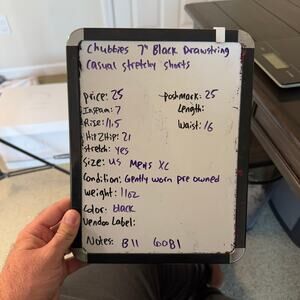 Chubbies 7" Black Drawstring
Casual stretchy shorts
Price: 25
Poshmark: 25
Inseam: 7
Length:
Rise: 11.5
Waist: 16
Hip 2 Hip: 21
Stretch: yes
Size: US Mens XL
Condition: Gently worn pre owned
Weight: 11oz
Color: black
Vendoo Label:
Notes: B11 60B1